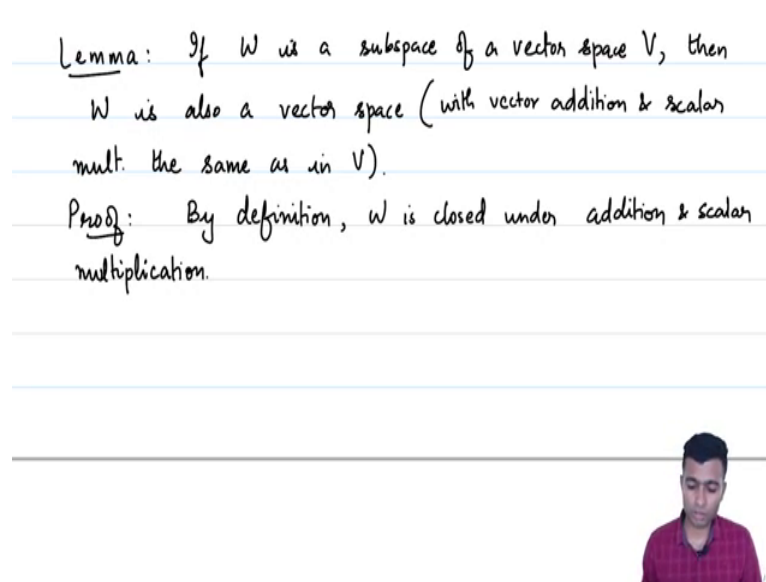 Lemma: If W is a subspace of a vector space V, then
W is also a vector space (with vector addition & scalar
mult. the same as in V).
Proof: By definition, W is closed under addition & scalar
multiplication.